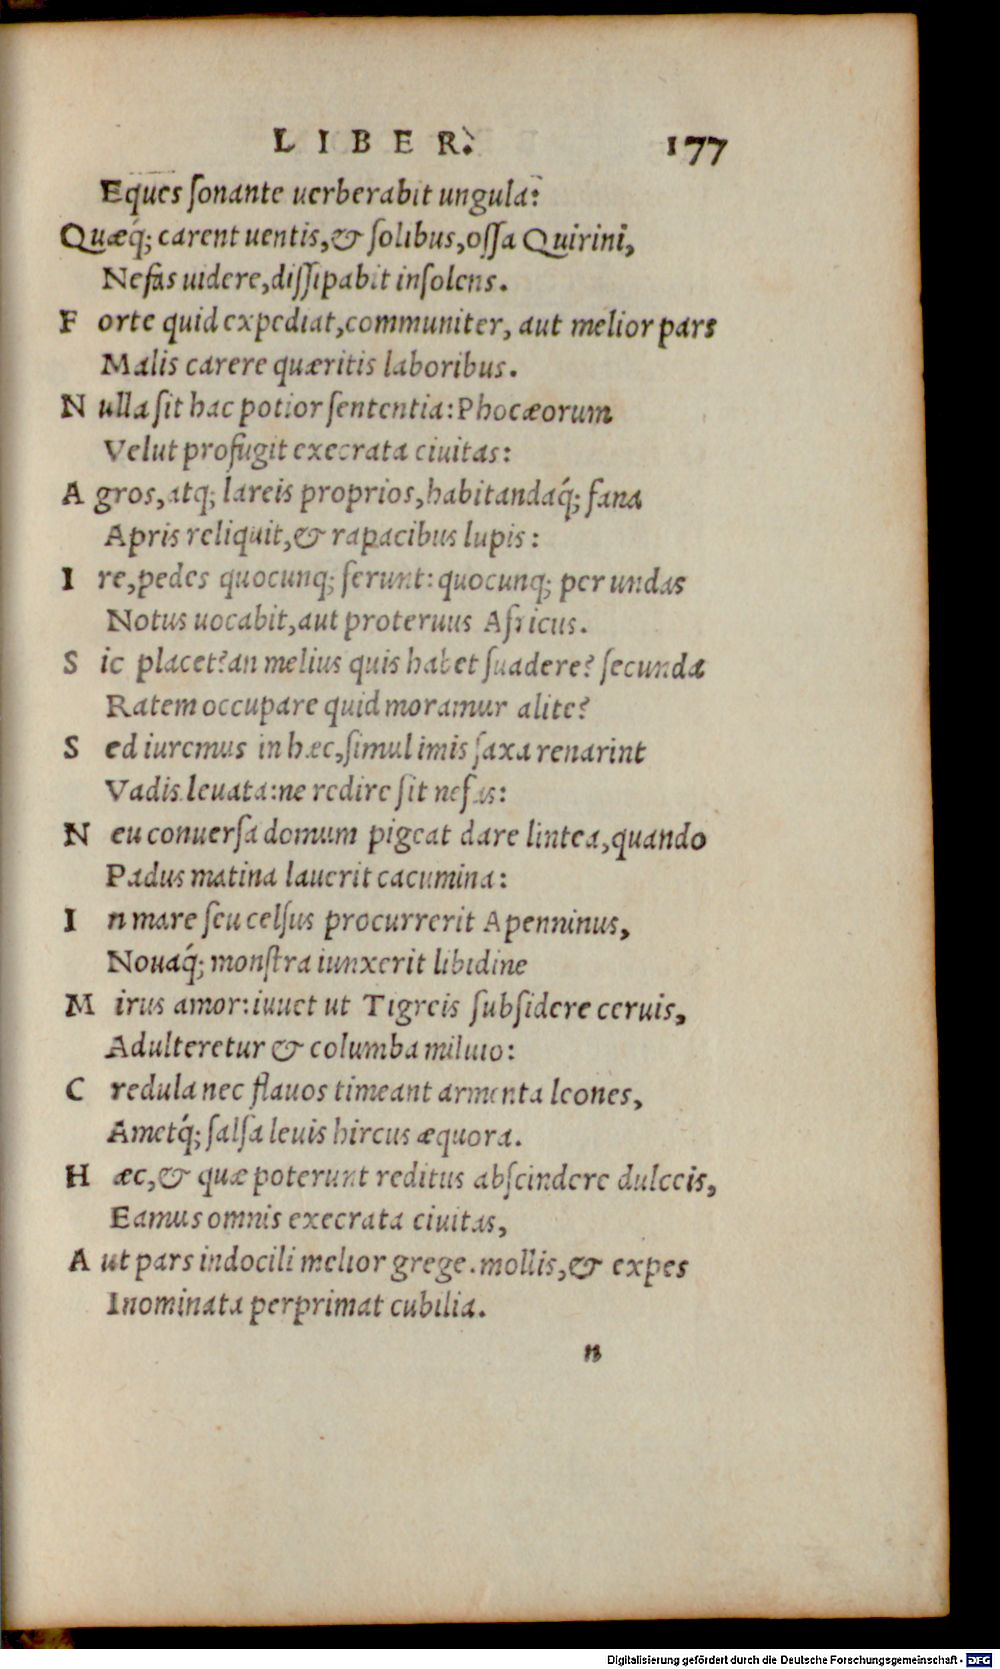 LIBER. 177
Eques ſonante uerberabit ungula:
Quæq́; carent uentis,& ſolibus,oſſa Quirini,
Nefas uidere,diſſipabit inſolens.
F orte quid expediat,communiter, aut melior pars
Malis carere quæritis laboribus.
N ulla ſit hac potior ſententia:Phocæorum
Velut profugit execrata ciuitas:
A gros,atq; lareis proprios,habitandaq́; fana
Apris reliquit,& rapacibus lupis:
I re,pedes quocunq; ferunt:quocunq; per undas
Notus uocabit,aut proteruus Africus.
S ic placet?an melius quis habet ſuadere? ſecunda
Ratem occupare quid moramur alite?
S ed iuremus in hæc,ſimul imis ſaxa renarint
Vadis leuata:ne redire ſit nefas:
N eu conuerſa domum pigeat dare lintea,quando
Padus matina lauerit cacumina:
I n mare ſeu celſus procurrerit Apenninus,
Nouaq́; monſtra iunxerit libidine
M irus amor:iuuet ut Tigreis ſubſidere ceruis,
Adulteretur & columba miluio:
C redula nec flauos timeant armenta leones,
Ametq́; ſalſa leuis hircus æquora.
H æc,& quæ poterunt reditus abſcindere dulceis,
Eamus omnis execrata ciuitas,
A ut pars indocili melior grege.mollis,& expes
Inominata perprimat cubilia.
n
Digitalisierung gefördert durch die Deutsche Forschungsgemeinschaft - DFG